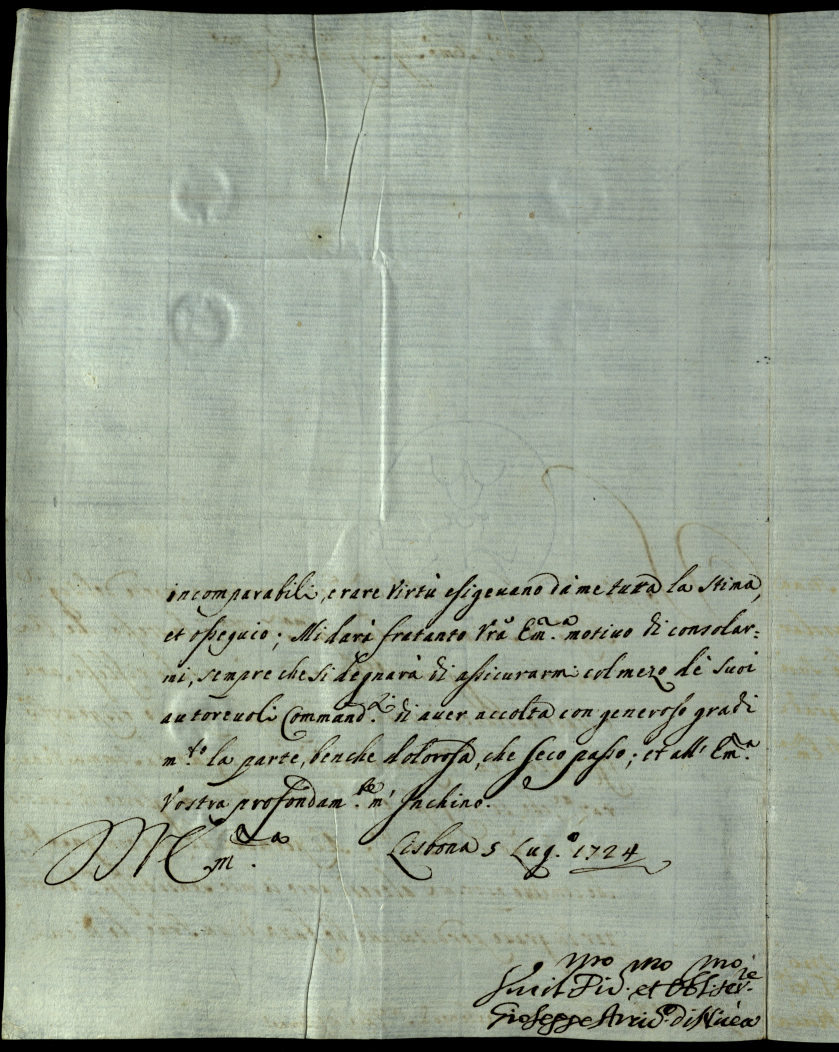 incomparabili, e rare Virtù esigeuano da me tutta la Stima,
et osseguio; Mi darà fratanto Vrã Em.ª motiuo di consolar=
mi, sempre che si degnarà di assicurarmi col mezo de' Suoi
autoreuoli Command.ti di auer accolta con generoso gradi
m.to la parte, benche dolorosa, che seco passo; et all' Em.ª
Vostra profondam.te m' Inchino.
Lisbona 5 Lug.º 1724
mo mo mo
et Obl. Ser.re
Gioseppe